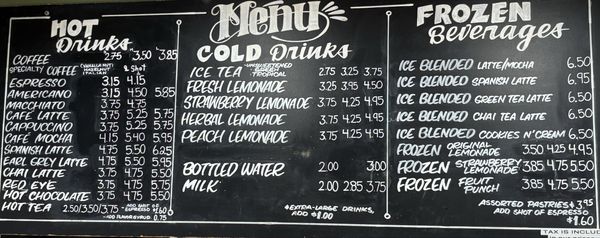 Menu
HOT
Drinks
COFFEE 2.75 3.50 3.85
SPECIALTY COFFEE
ESPRESSO 3.15 4.15
AMERICANO 3.15 4.50 5.85
MACCHIATO 3.75 4.75
CAFE LATTE 3.75 5.25 5.75
CAPPUCCINO 3.75 5.25 5.75
CAFE MOCHA 4.15 5.40 5.95
SPANISH LATTE 4.75 5.50 6.25
EARL GREY LATTE 4.75 5.50 5.95
CHAI LATTE 3.75 4.75 5.50
RED EYE 3.75 4.75 5.75
HOT CHOCOLATE 3.75 4.75 5.50
HOT TEA 2.50/3.50/3.75
COLD Drinks
ICE TEA -UNSWEETENED TROPICAL 2.75 3.25 3.75
FRESH LEMONADE 3.25 3.95 4.50
STRAWBERRY LEMONADE 3.75 4.25 4.95
HERBAL LEMONADE 3.75 4.25 4.95
PEACH LEMONADE 3.75 4.25 4.95
BOTTLED WATER 2.00 3.00
MILK 2.00 2.85 3.75
*EXTRA-LARGE DRINKS,
ADD $1.00
FROZEN
Beverages
ICE BLENDED LATTE/MOCHA 6.50
ICE BLENDED SPANISH LATTE 6.95
ICE BLENDED GREEN TEA LATTE 6.50
ICE BLENDED CHAI TEA LATTE 6.50
ICE BLENDED COOKIES N' CREAM 6.50
FROZEN ORIGINAL LEMONADE 3.50 4.25 4.95
FROZEN STRAWBERRY LEMONADE 3.85 4.75 5.50
FROZEN FRUIT PUNCH 3.85 4.75 5.50
ASSORTED PASTRIES $3.95
ADD SHOT OF ESPRESSO
$1.60
TAX IS INCLU